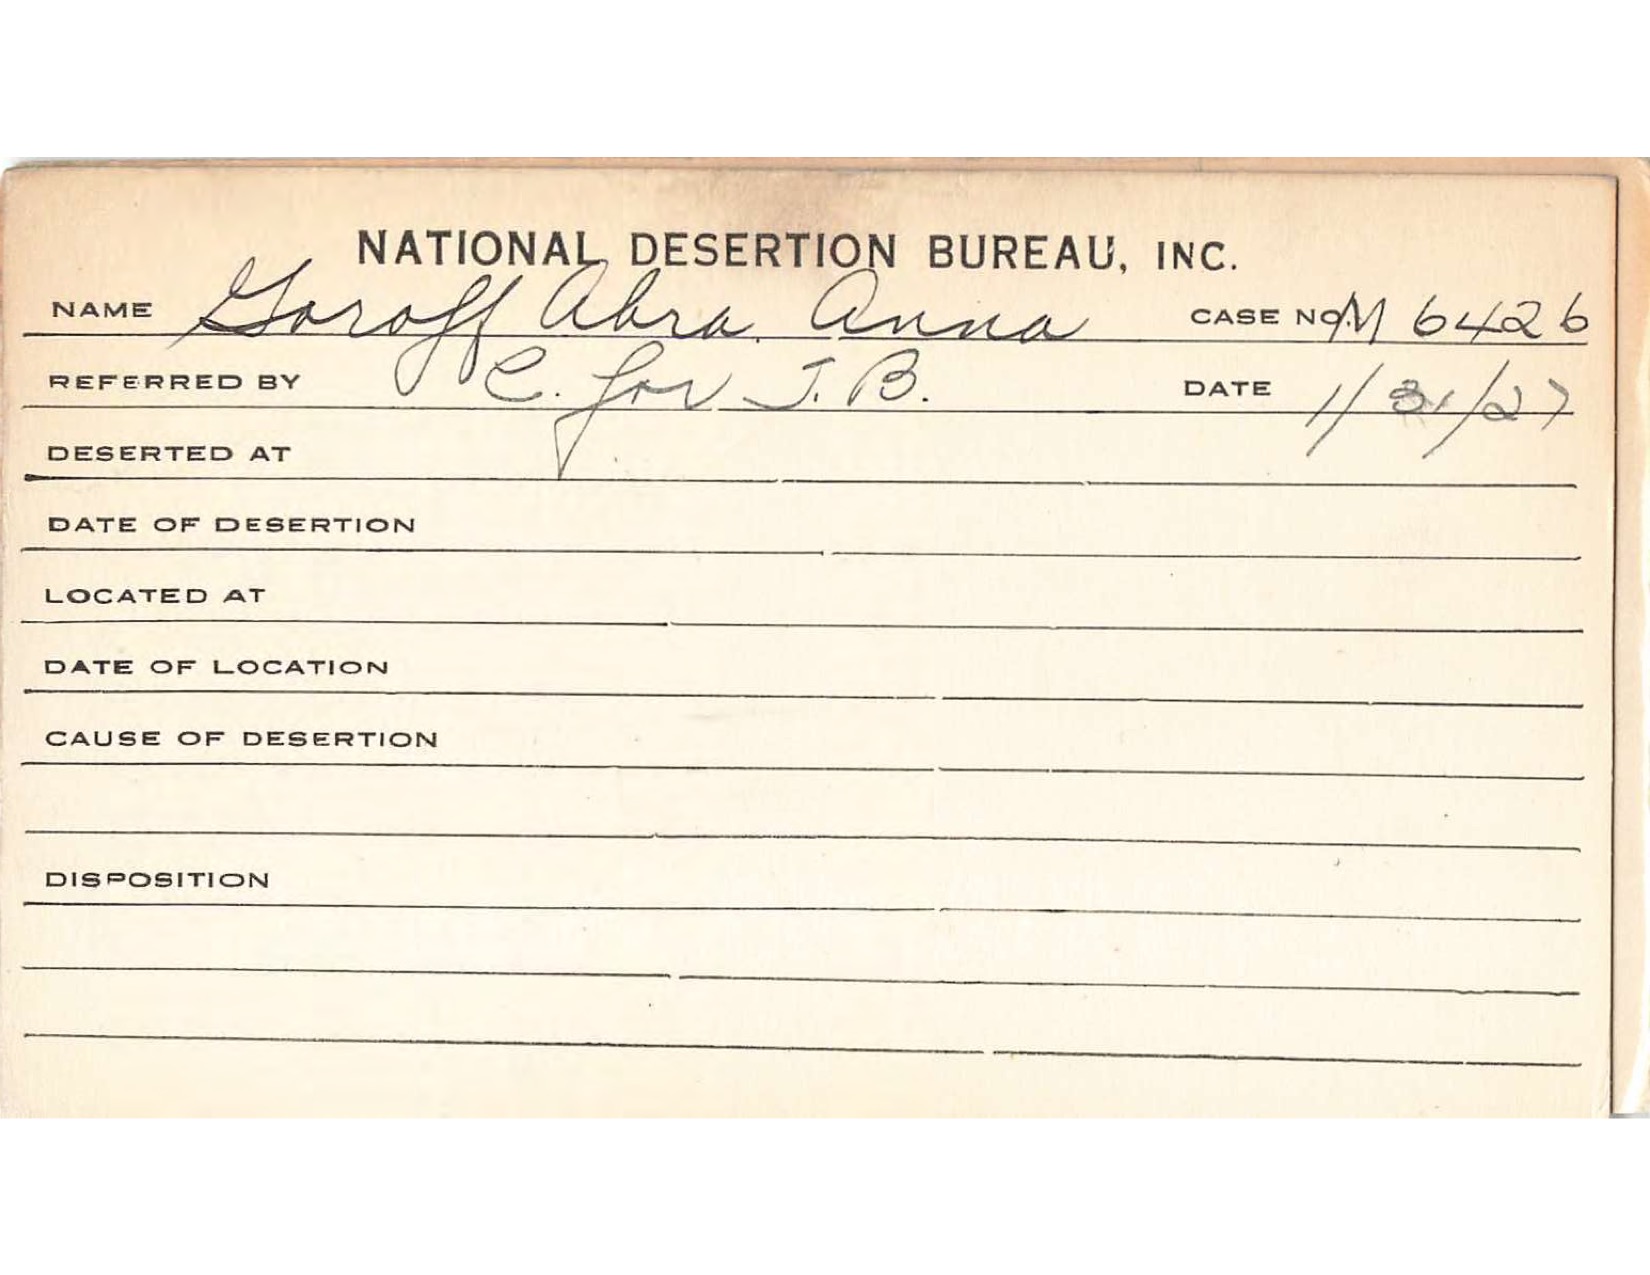 NATIONAL DESERTION BUREAU, INC.
NAME Goroff Abra. Anna CASE NO. M 6426
REFERRED BY C. for J. B. DATE 1/31/27
DESERTED AT
DATE OF DESERTION
LOCATED AT
DATE OF LOCATION
CAUSE OF DESERTION
DISPOSITION